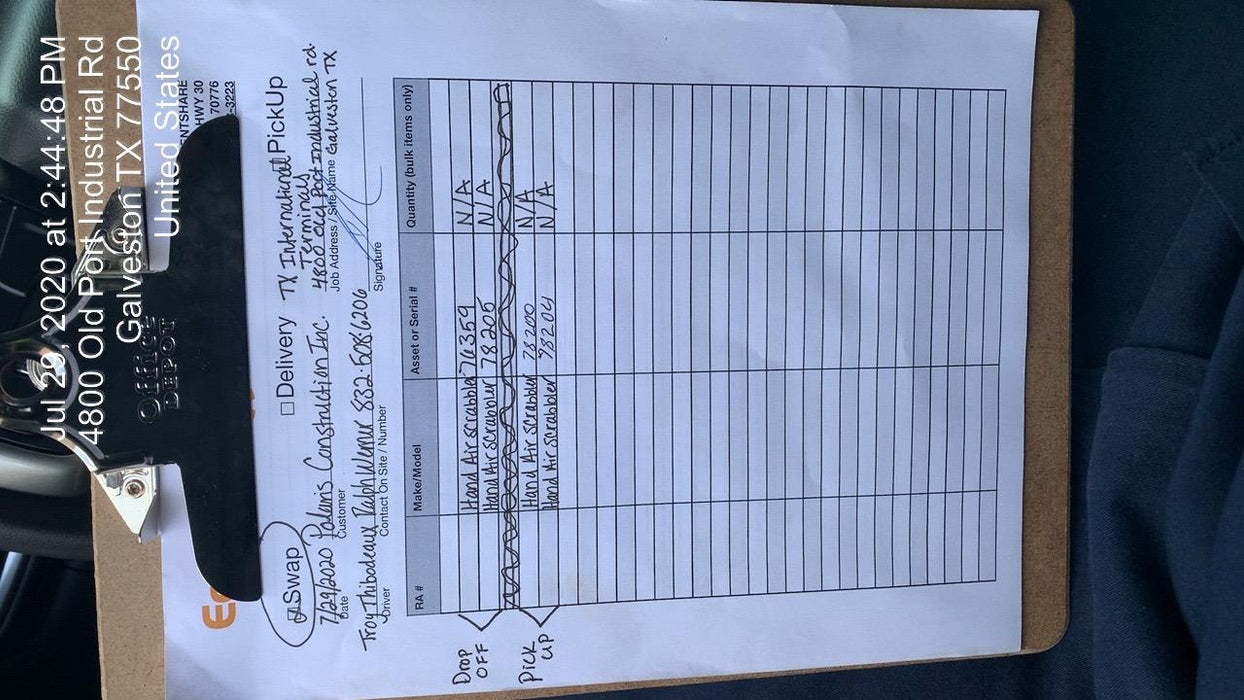 Jul 29, 2020 at 2:44:48 PM
4800 Old Port Industrial Rd
Galveston TX 77550
United States
Office
DEPOT
ENTSHARE
HWY 30
70776
-3223
Swap
Delivery
PickUp
TX International
Terminals
7/29/2020
Construction Inc.
4800 Old Port Industrial rd.
Date
Customer
Job Address / Site Name Galveston TX
Troy Thibodeaux Ralph 832-5086206
Driver
Contact On Site / Number
Signature
RA # Make/Model Asset or Serial # Quantity (bulk items only)
Drop
OFF
Hand Air scrabbler 76359 N/A
Hand Air scrabbler 78205 N/A
Pick
up
Hand Air scrabbler 78200 N/A
Hand Air scrabbler 78204 N/A